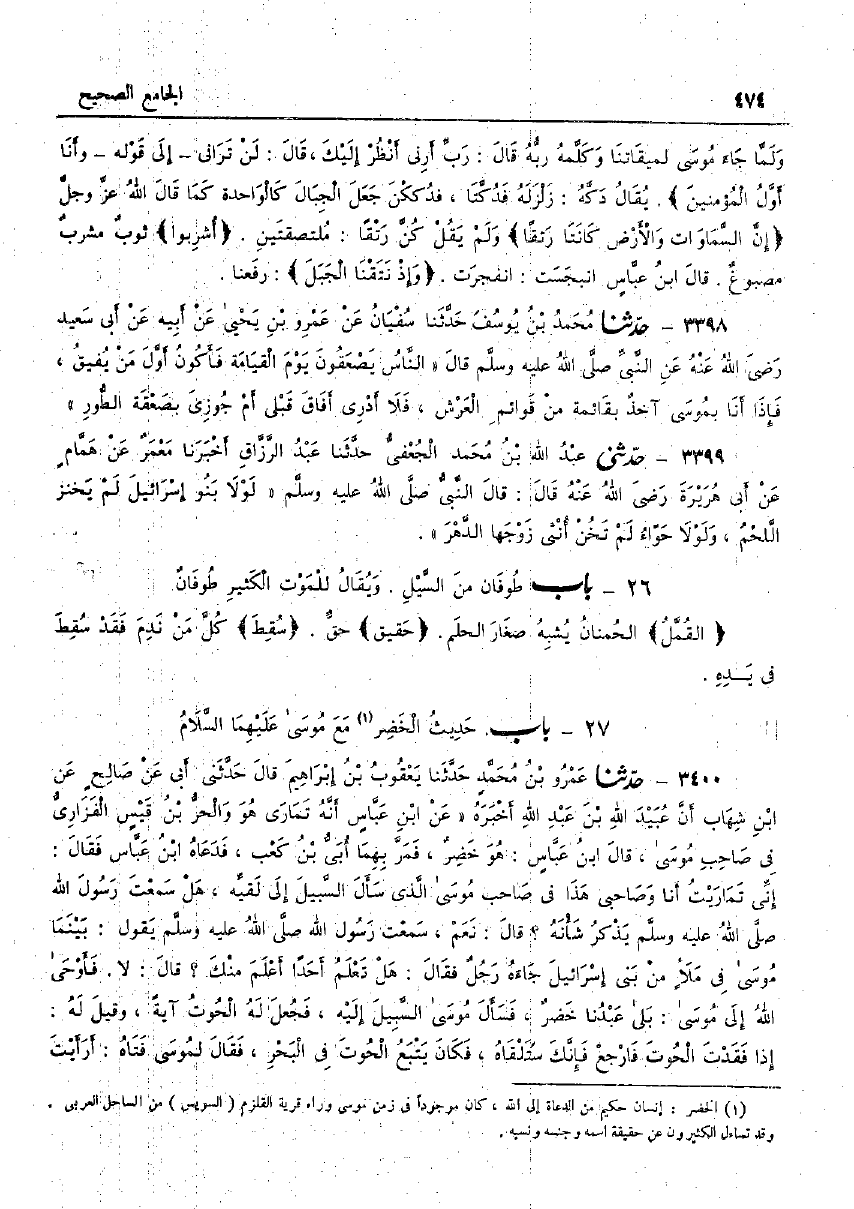 ٤٧٤ الجامع الصحيح
وَلَمَّا جَاءَ مُوسَى لميقاتنَا وَكَلَّمهُ ربُّهُ قَالَ : رَبِّ أَرِنِى أَنْظُرْ إِلَيْكَ ، قَالَ : لَنْ تَرَانِى - إِلَى قَوْلِه - وأَنَا
أَوَّلُ الْمُؤمنينَ ﴾ . يُقَالُ دَكَّهُ : زَلْزَلَه فَدُكَّتَا ، فَدُككْنَ جَعَلَ الْجِبَالَ كَالْوَاحدة كمَا قَالَ اللهُ عزَّ وجلَّ
﴿ إِنَّ السَّمَاوَات وَالْأَرْضَ كَانَتَا رَتقًا ﴾ وَلَمْ يَقُلْ كُنَّ رَتْقًا : مُلتصقتَينِ . ﴿ أُشْرِبُوا ﴾ ثوبٌ مشربٌ
مصبوغٌ . قالَ ابنُ عبَّاسٍ انبجَسَت : انفجرَت . ﴿ وَإِذْ نَتَقْنَا الْجَبَلَ ﴾ : رفَعنا .
٣٣٩٨ - حدّثنا مُحَمدُ بْنُ يُوسُفَ حَدَّثَنا سُفْيَانُ عَنْ عَمْرِو بْنِ يَحْيىٰ عَنْ أبِيه عَنْ أبِى سَعيد
رَضِىَ اللهُ عَنْهُ عَنِ النَّبِىِّ صلَّى اللهُ عليه وسلَّم قالَ « النَّاسُ يَصْعَقُونَ يَوْمَ الْقِيَامَة فَأَكُونُ أَوَّلَ مَنْ يُفيقُ ،
فَإِذَا أَنَا بِمُوسَى آخذٌ بقَائمة منْ قَوائم الْعَرْشِ ، فَلَا أَدْرِى أَفَاقَ قَبْلِى أَمْ جُوزِىَ بصَعْقَة الطُّورِ »
٣٣٩٩ - حدّثنى عبْدُ الله بْنُ مُحَمد الْجُعْفىُّ حدَّثَنا عَبْدُ الرَّزَّاقِ أَخْبَرَنا مَعْمَرٌ عَنْ هَمَّامٍ
عَنْ أَبِى هُرَيْرَةَ رَضىَ اللهُ عَنْهُ قَالَ : قالَ النَّبِىُّ صلَّى اللهُ عليه وسلَّم « لَوْلَا بَنُو إسْرَائيلَ لَمْ يَخنز
اللَّحْمُ ، وَلَوْلَا حَوَّاءُ لَمْ تَخُنْ أُنْثى زَوْجَها الدَّهْرَ » .
٢٦ - باب طُوفَان منَ السَّيْلِ . وَيُقَالُ للْمَوْت الْكَثيرِ طُوفَانٌ
﴿ القُمَّلُ ﴾ الحُمنانُ يُشبِهُ صغَارَ الحلَم . ﴿ حَقيق ﴾ حقٌّ . ﴿ سُقِطَ ﴾ كُلُّ مَنْ نَدمَ فَقَدْ سُقِطَ
فى يَـدِهِ .
٢٧ - باب . حَديثُ الْخَضِر (١) مَعَ مُوسَىٰ عَلَيْهِمَا السَّلَامُ
٣٤٠٠ - حدّثنا عَمْرُو بْنُ مُحَمَّدٍ حَدَّثَنا يَعْقُوبُ بْنُ إِبْرَاهِيمَ قالَ حَدَّثَنى أَبى عَنْ صَالِحٍ عَن
ابْنِ شِهَاب أَنَّ عُبَيْدَ اللهِ بْنَ عَبْدِ اللهِ أَخْبَرَهُ « عَنْ ابْنِ عَبَّاسٍ أَنَّهُ تَمَارَى هُوَ وَالْحرُّ بْنُ قَيْسٍ الْفَزَارِىُّ
فى صَاحِبِ مُوسَىٰ ، قالَ ابنُ عَبَّاسٍ : هُوَ خَضِرٌ ، فَمَرَّ بِهِمَا أُبَىُّ بْنُ كَعْب ، فَدَعَاهُ ابْنُ عَبَّاس فَقَالَ :
إِنِّى تَمَارَيْتُ أنا وَصَاحبى هَذَا فى صَاحب مُوسَىٰ الَّذى سَأَلَ السَّبيلَ إلَى لُقيِّه ، هَلْ سَمعْتَ رَسُولَ الله
صلَّى اللهُ عليه وسلَّم يَذْكرُ شَأْنَهُ ؟ قالَ : نَعَمْ ، سَمعْت رَسُولَ الله صلَّى اللهُ عليه وسلَّم يَقول : بَيْنَمَا
مُوسَىٰ فى مَلَأ منْ بَنى إِسْرَائيلَ جَاءَهُ رَجُلٌ فقالَ : هَلْ تَعْلَمُ أَحَدًا أَعْلَمَ منْكَ ؟ قالَ : لا . فَأَوْحَىٰ
اللهُ إلَى مُوسَىٰ : بَلىٰ عَبْدُنا خَضرٌ ، فَسَأَلَ مُوسَىٰ السَّبيلَ إلَيْه ، فَجُعلَ لَهُ الْحوتُ آيةً ، وقيلَ لَهُ :
إذا فَقَدْتَ الْحُوتَ فَارْجعْ فَإِنَّكَ ستَلْقَاهُ ، فَكَانَ يَتْبَعُ الْحوتَ فى الْبَحْرِ ، فَقَالَ لمُوسَى فَتَاهُ : أَرَأَيْتَ
(١) الخضر : إنسان حكيم من الدعاة إلى الله ، كان موجوداً فى زمن موسى وراء قرية القلزم ( السويس ) من الساحل العربى .
وقد تساءل الكثيرون عن حقيقة اسمه وجنسه ونسبه .